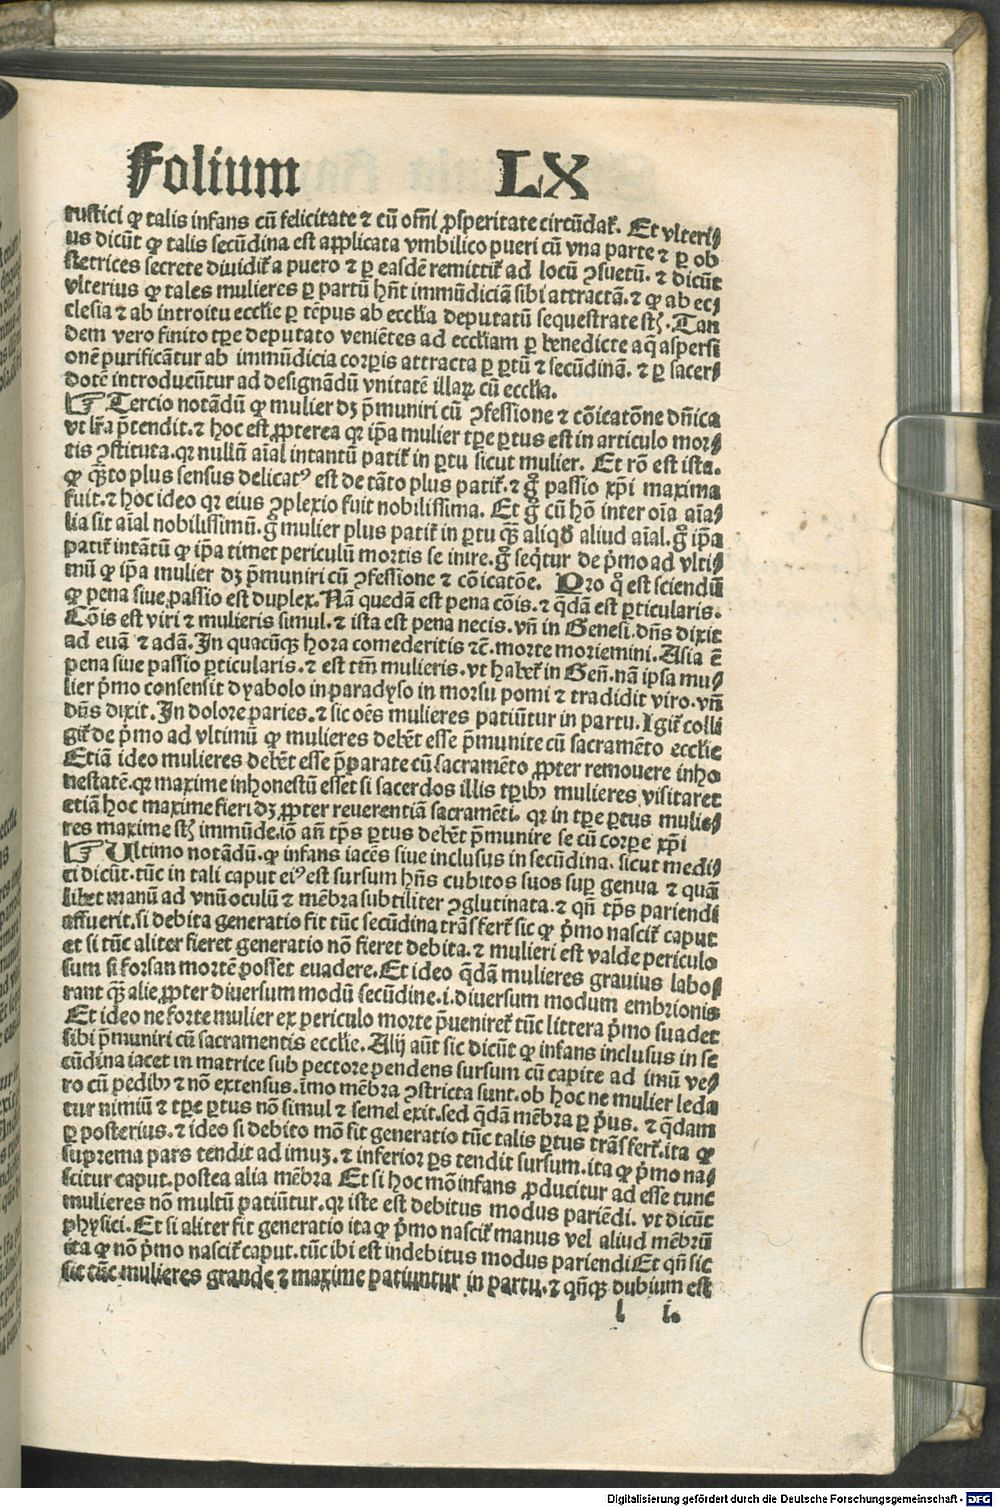 Folium LX
rustici qꝫ talis infans cū felicitate ⁊ cū om̄i ꝓsperitate circūdat᷑. Et vlteri⸗
us dicūt ꝙ talis secūdina est applicata vmbilico pueri cū vna parte ⁊ ꝑ ob
stetrices secrete diuidit᷑ a puero ⁊ ꝑ easdē remittit᷑ ad locū ꝯsuetū. ⁊ dicūt
vlterius ꝙ tales mulieres ꝑ partū hn̄t immūdiciā sibi attractā. ⁊ ꝙ ab ec⸗
clesia ⁊ ab introitu ecclīe ꝑ tēpus ab ecclīa deputatū sequestrate st̄. Tan
dem vero finito tꝑe deputato veniētes ad eccliam ꝑ benedicte aq̄ aspersi
onē purificātur ab immūdicia corꝑis attracta ꝑ ꝑtū ⁊ secūdinā. ⁊ ꝑ sacer⸗
dotē introducūtur ad designādū vnitatē illaꝝ cū ecclīa.
☞ Tercio notādū ꝙ mulier dꝫ p̄muniri cū ꝯfessione ⁊ cōicatōne dn̄ica
vt lr̄a p̄tendit. ⁊ hoc est ꝓpterea qꝛ ip̄a mulier tꝑe ꝑtus est in articulo mor⸗
tis ꝯstituta. qꝛ nullū aīal intantū patit᷑ in ꝑtu sicut mulier. Et rō est ista.
ꝙ q̄to plus sensus delicatꝰ est de tāto plus patit᷑. ⁊ gͦ passio xp̄i maxima
fuit. ⁊ hoc ideo qꝛ eius ꝯplexio fuit nobilissima. Et gͦ cū hō inter oīa aīa⸗
lia sit aīal nobilissimū. gͦ mulier plus patit᷑ in ꝑtu q̄ꝫ aliqđ aliud aīal. gͦ ip̄a
patit᷑ intātū ꝙ ip̄a timet periculū mortis se inire. gͦ seq̄tur de p̄mo ad vlti⸗
mū ꝙ ip̄a mulier dꝫ p̄muniri cū ꝯfessione ⁊ cōicatōe. Pro qͦ est sciendū
ꝙ pena siue passio est duplex. Nā quedā est pena cōis. ⁊ q̄dā est ꝑticularis.
Cōis est viri ⁊ mulieris simul. ⁊ ista est pena necis. vn̄ in Genesi. dn̄s dixit
ad euā ⁊ adā. In quacūqꝫ hora comederitis ⁊c̄. morte moriemini. Alia ē
pena siue passio ꝑticularis. ⁊ est tm̄ mulieris. vt habet᷑ in Gen̄. nā ipsa mu⸗
lier p̄mo consensit dyabolo in paradyso in morsu pomi ⁊ tradidit viro. vn̄
dn̄s dixit. In dolore paries. ⁊ sic oēs mulieres patiūtur in partu. Igit᷑ colli
git᷑ de p̄mo ad vltimū ꝙ mulieres debēt esse p̄munite cū sacramēto ecclīe
Etiā ideo mulieres debēt esse p̄parate cū sacramēto ꝓpter remouere inho
nestatē. qꝛ maxime inhonestū esset si sacerdos illis tꝑibꝫ mulieres visitaret
etiā hoc maxime fieri dꝫ ꝓpter reuerentiā sacramēti. qꝛ in tꝑe ꝑtus mulie⸗
res maxime st̄ immūde. iō an̄ tp̄s ꝑtus debēt p̄munire se cū corꝑe xp̄i
☞ Ultimo notādū. ꝙ infans iacēs siue inclusus in secūdina. sicut medi⸗
ci dicūt. tūc in tali caput eiꝰ est sursum hn̄s cubitos suos suꝑ genua ⁊ quā
libet manū ad vnū oculū ⁊ mēbra subtiliter ꝯglutinata. ⁊ qn̄ tp̄s pariendi
affuerit. si debita generatio fit tūc secūdina trāsfert᷑ sic ꝙ p̄mo nascit᷑ caput
et si tūc aliter fieret generatio nō fieret debita. ⁊ mulieri est valde periculo
sum si forsan mortē posset euadere. Et ideo q̄dā mulieres grauius labo⸗
rant q̄ꝫ alie ꝓpter diuersum modū secūdine. i. diuersum modum embrionis
Et ideo ne forte mulier ex periculo morte p̄ueniret᷑ tūc littera p̄mo suadet
sibi p̄muniri cū sacramentis ecclīe. Alij aūt sic dicūt ꝙ infans inclusus in se
cūdina iacet in matrice sub pectore pendens sursum cū capite ad imū ve⸗
ro cū pedibꝫ ⁊ nō extensus. īmo mēbra ꝯstricta sunt. ob hoc ne mulier leda
tur nimiū ⁊ tꝑe ꝑtus nō simul ⁊ semel exit. sed q̄dā mēbra ꝑ p̄us. ⁊ q̄dam
ꝑ posterius. ⁊ ideo si debito mō fit generatio tūc talis ꝑtus trāsfert᷑. ita ꝙ
suprema pars tendit ad imuꝫ. ⁊ inferior ꝑs tendit sursum. ita ꝙ p̄mo na⸗
scitur caput. postea alia mēbra Et si hoc mō infans ꝓducitur ad esse tunc
mulieres nō multū patiūtur. qꝛ iste est debitus modus pariēdi. vt dicūt
physici. Et si aliter fit generatio ita ꝙ p̄mo nascit᷑ manus vel aliud mēbrū
ita ꝙ nō p̄mo nascit᷑ caput. tūc ibi est indebitus modus pariendi Et qn̄ sic
sic tūc mulieres grande ⁊ maxime patiuntur in partu. ⁊ qn̄qꝫ dubium est
l i.
Digitalisierung gefördert durch die Deutsche Forschungsgemeinschaft - DFG